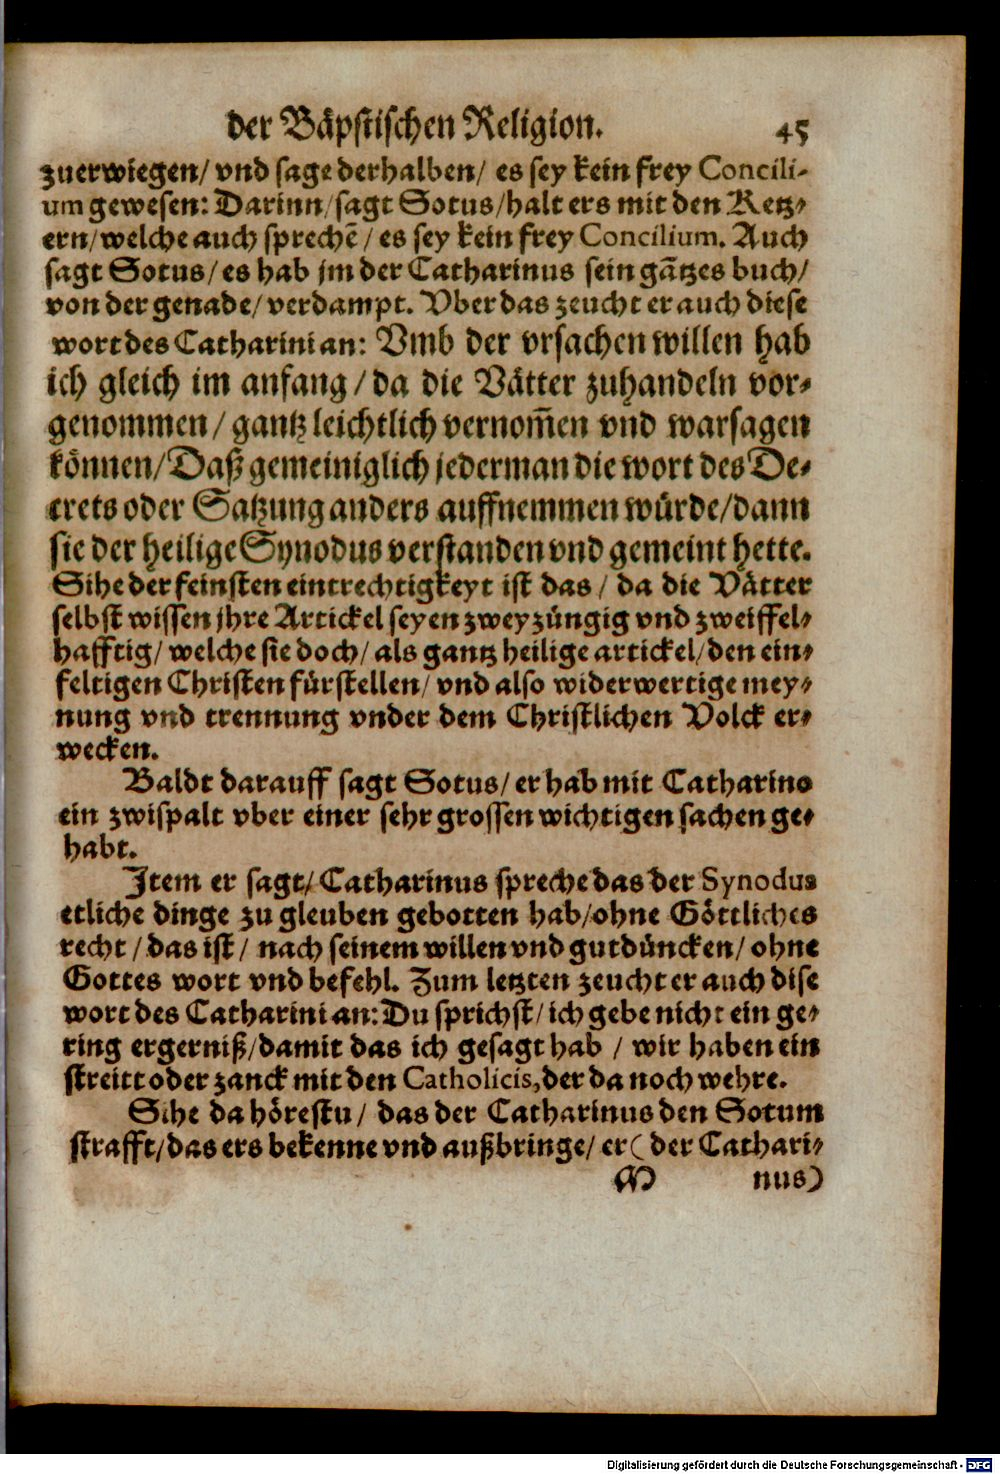 der Bäpstischen Religion. 45
zuerwiegen/ vnd sage derhalben/ es sey kein frey Concili-
um gewesen: Darinn/sagt Sotus/halt ers mit den Ketz-
ern/welche auch sprechē/ es sey kein frey Concilium. Auch
sagt Sotus/ es hab jm der Catharinus sein gātzes buch/
von der genade/ verdampt. Vber das zeucht er auch diese
wort des Catharini an: Vmb der vrsachen willen hab
ich gleich im anfang/da die Vätter zuhandeln vor-
genommen/ gantz leichtlich vernom̄en vnd warsagen
können/Daß gemeiniglich jederman die wort des De-
crets oder Satzung anders auffnemmen würde/dann
sie der heilige Synodus verstanden vnd gemeint hette.
Sihe der feinsten eintrechtigkeyt ist das/ da die Vätter
selbst wissen jhre Artickel seyen zweyzüngig vnd zweiffel-
hafftig/ welche sie doch/ als gantz heilige artickel/den ein-
feltigen Christen fürstellen/ vnd also widerwertige mey-
nung vnd trennung vnder dem Christlichen Volck er-
wecken.
Baldt darauff sagt Sotus/ er hab mit Catharino
ein zwispalt vber einer sehr grossen wichtigen sachen ge-
habt.
Item er sagt/ Catharinus spreche das der Synodus
etliche dinge zu gleuben gebotten hab/ohne Göttliches
recht/das ist/ nach seinem willen vnd gutdüncken/ ohne
Gottes wort vnd befehl. Zum letzten zeucht er auch dise
wort des Catharini an: Du sprichst/ ich gebe nicht ein ge-
ring ergerniß/damit das ich gesagt hab / wir haben ein
streitt oder zanck mit den Catholicis, der da noch wehre.
Sihe da hörestu/ das der Catharinus den Sotum
strafft/das ers bekenne vnd außbringe/ er (der Cathari-
M nus)
Digitalisierung gefördert durch die Deutsche Forschungsgemeinschaft - DFG